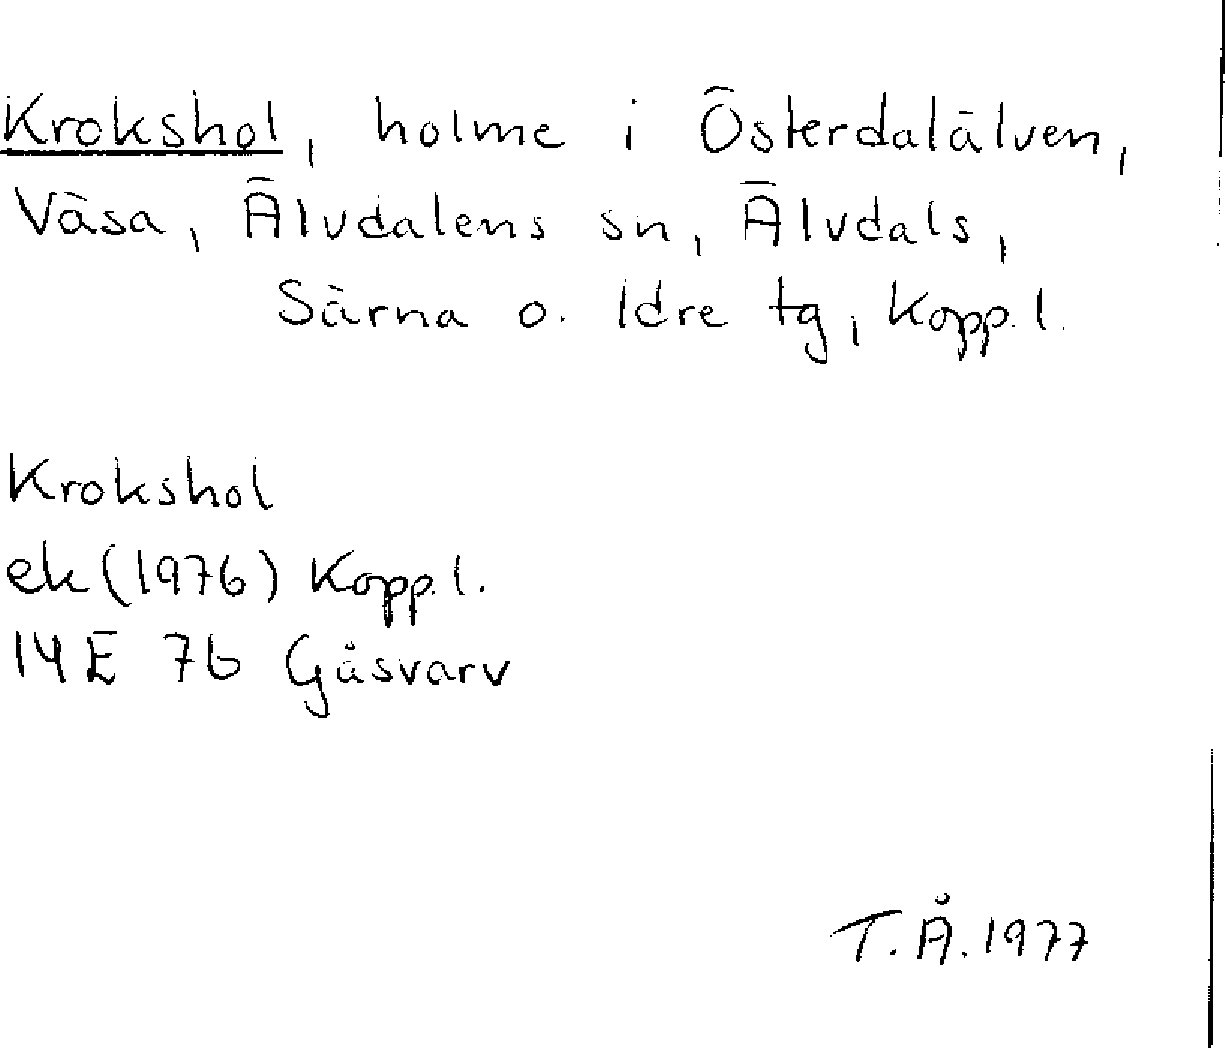 Krokshol, holme i Österdalälven,
Väsa, Älvdalens sn, Älvdals,
Särna o. Idre tg, Kopp. l.
Krokshol
ek (1976) Kopp. l.
14E 7b Gåsvarv
T.Å. 1977